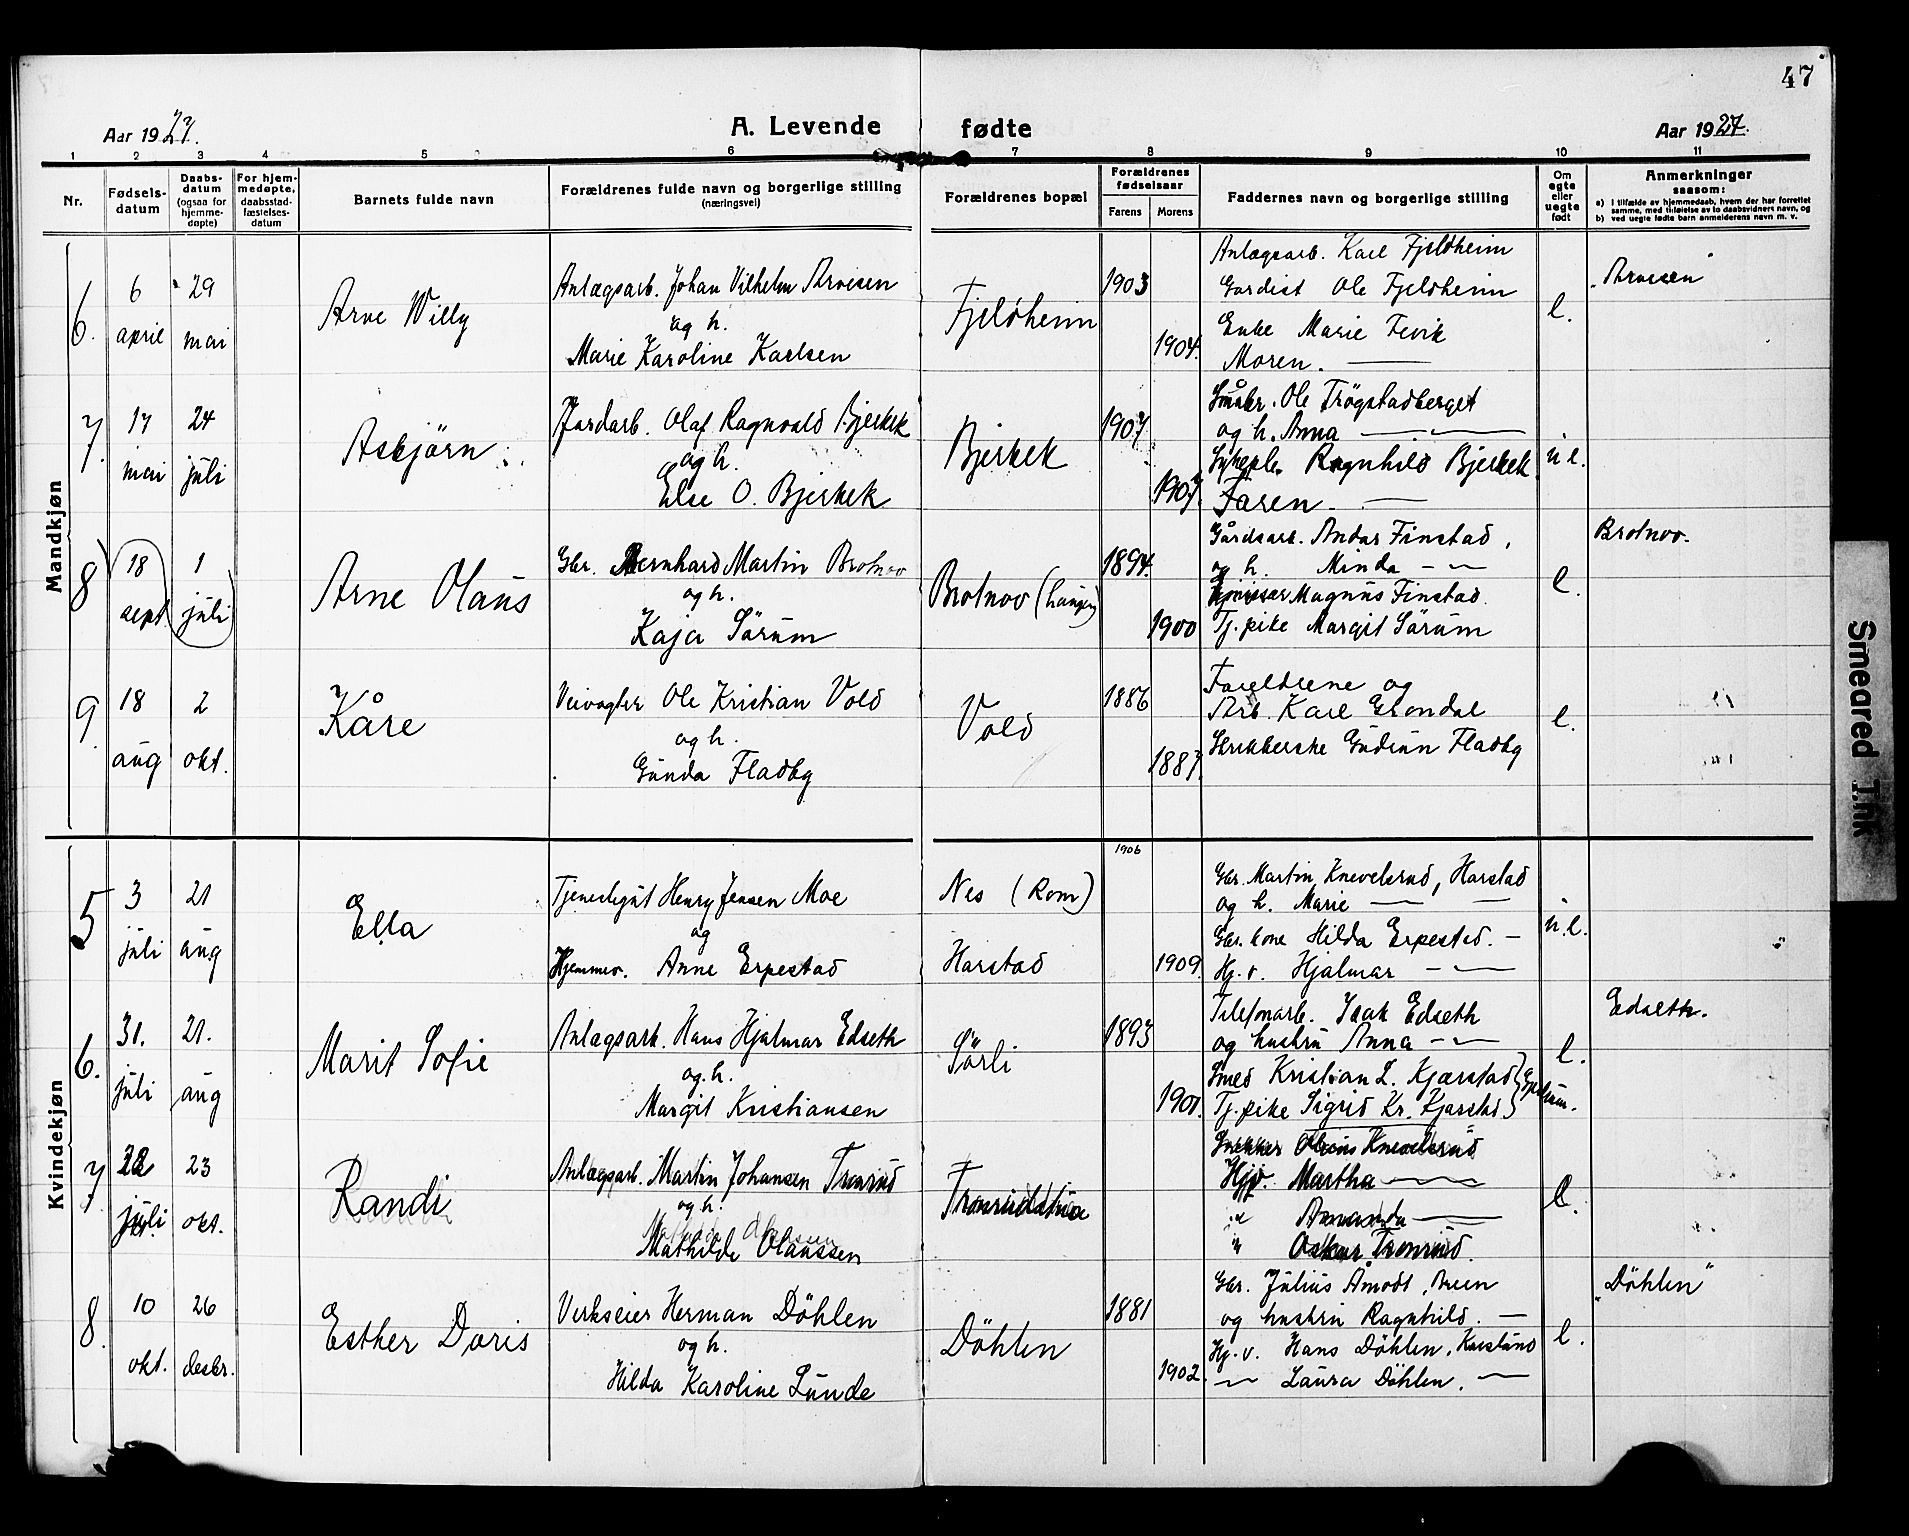 47
Aar 1927.
A. Levende fødte
Aar 1927.
1 2 3 4 5 6 7 8 9 10 11
Nr.
Fødsels-
datum
Daabs-
datum
(ogsaa for
hjemme-
døpte)
For hjem-
medøpte,
daabsstad-
fæstelses-
datum
Barnets fulde navn
Forældrenes fulde navn og borgerlige stilling
(næringsvei)
Forældrenes bopæl
Forældrenes
fødselsaar
Farens Morens
Faddernes navn og borgerlige stilling
Om
egte
eller
uegte
født
Anmerkninger
saasom:
a) i tilfælde av hjemmedaab, hvem der har forrettet
samme, med tilføielse av to daabsvidners navn, og
b) ved uegte fødte barn anmelderens navn m. v.
Mandkjøn
6.
6
april
29
mai
Arne Willy
Anlægsarb. Johan Vilhelm Arvesen
og h.
Marie Karoline Karlsen
Fjeldheim
1903
1904.
Anlægsarb. Karl Fjeldheim
Gardist Ole Fjeldheim
Enke Marie Fevik
Moren.
e.
"Arvesen"
7.
17
mai
24
juli
Asbjörn
Jordarb. Olaf Ragnvald Bjerkek
og h.
Else O. Bjerkek
Bjerkek
1907
1907.
Småbr. Ole Trøgstadberget
og h. Anna
Sykepl. Ragnhild Bjerkek
Faren.
u e.
8
18
sept.
1
juli
Arne Olaus
Gbr. Bernhard Martin Brotnov
og h.
Kaja Sörum
Brotnov (haugen)
1894.
1900
Gårdsarb. Andar Finstad,
og h. Minda
Magnus Finstad.
Tj. pike Margit Sörum
e.
Brotnov.
9.
18
aug
2
okt.
Kåre
Veivogter Ole Kristian Vold
og h.
Gunda Fladby
Vold
1886
1887.
Foreldrene og
Arb. Karl Grøndal
Strikkerske Gudrun Fladby
e.
Kvindekjøn
5
3
juli
21
aug
Ella
Tjenestgut Henry Jensen Moe
og
Hjemmev. Anne Erpestad
Nes (Rom)
Harstad
1906
1909.
Gbr. Martin Knevelsrud, Harstad
og h. Marie
Gbr. kone Hilda Erpestad.
Hj. v. Hjalmar
u. e.
6.
31.
juli
21.
aug
Marit Sofie
Anlægsarb. Hans Hjalmar Edseth
og. h.
Margit Kristiansen
Sörli
1893
1901.
Telefonarb. Isak Edseth
og hustru Anna
Smed Kristian L. Kjærstad
Tj. pike Sigrid Kr. Kjærstad
e.
Edseth.
7.
22
juli
23
okt.
Randi
Anlægsarb. Martin Johansen Tronrud
og h.
Mathilde Olaussen
Snekker Knevelsrud
Hjv. Martha
" Amanda
" Oskar Tronrud.
e.
8.
10
okt.
26
desbr.
Esther Doris
Verkseier Herman Döhlen
og h.
Hilda Karoline Lunde
Döhlen
1881
1902.
Gbr. Julius Åmodt, Breen
og hustru Ragnhild.
Hj. v. Hans Döhlen,
Laura Döhlen.
e.
"Döhlen"
Smeared Ink